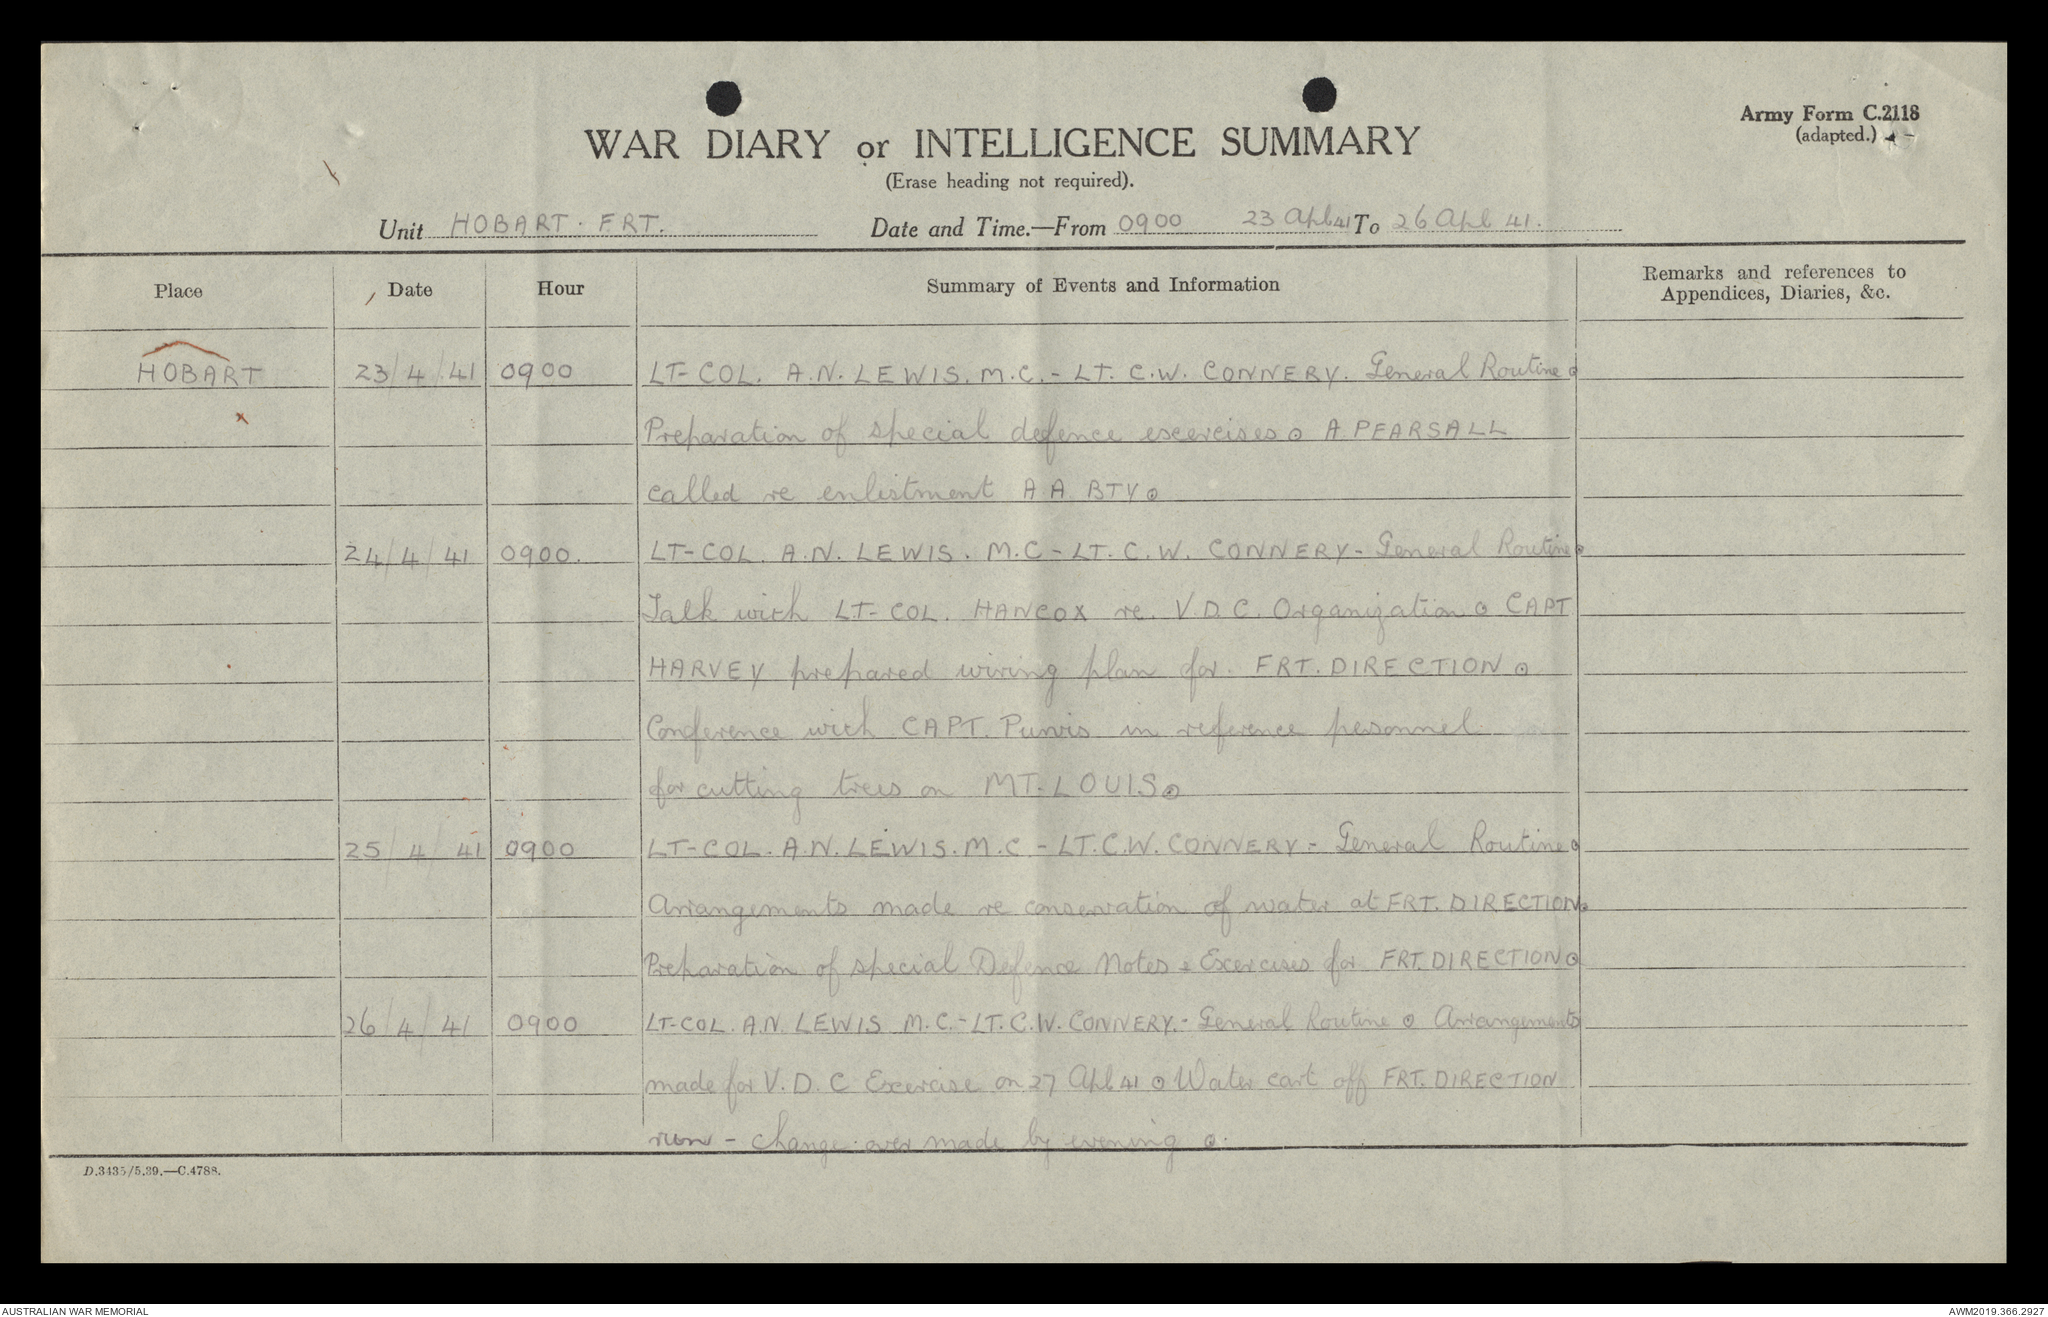 Army Form C.2118
(adapted.)
WAR DIARY or INTELLIGENCE SUMMARY
(Erase heading not required).
Unit HOBART. FRT. Date and Time.—From 0900 23 Apl 41 To 26 Apl 41.
Place Date Hour Summary of Events and Information Remarks and references to
Appendices, Diaries, &c.
HOBART 23/4/41 0900 LT-COL. A.N. LEWIS. M.C. - LT. C.W. CONNERY. General Routine.
Preparation of special defence excercises. A PEARSALL
called re enlistment A A BTY.
24/4/41 0900. LT-COL. A.N. LEWIS. M.C - LT. C.W. CONNERY - General Routine.
Talk with LT-COL. HANCOX re. V.D.C. Organization. CAPT
HARVEY prepared wiring plan for FRT. DIRECTION.
Conference with CAPT. Purvis in reference personnel
for cutting trees on MT. LOUIS.
25/4/41 0900 LT-COL. A.N. LEWIS. M.C - LT. C.W. CONNERY - General Routine.
Arrangements made re conservation of water at FRT. DIRECTION.
Preparation of special Defence Notes & Exercises for FRT. DIRECTION.
26/4/41 0900 LT-COL. A.N. LEWIS M.C. - LT. C.W. CONNERY. - General Routine. Arrangements
made for V.D.C Exercise on 27 Apl 41. Water cart off FRT. DIRECTION
run - change over made by evening.
D.3435/5.39.—C.4788.
AUSTRALIAN WAR MEMORIAL AWM2019.366.2927